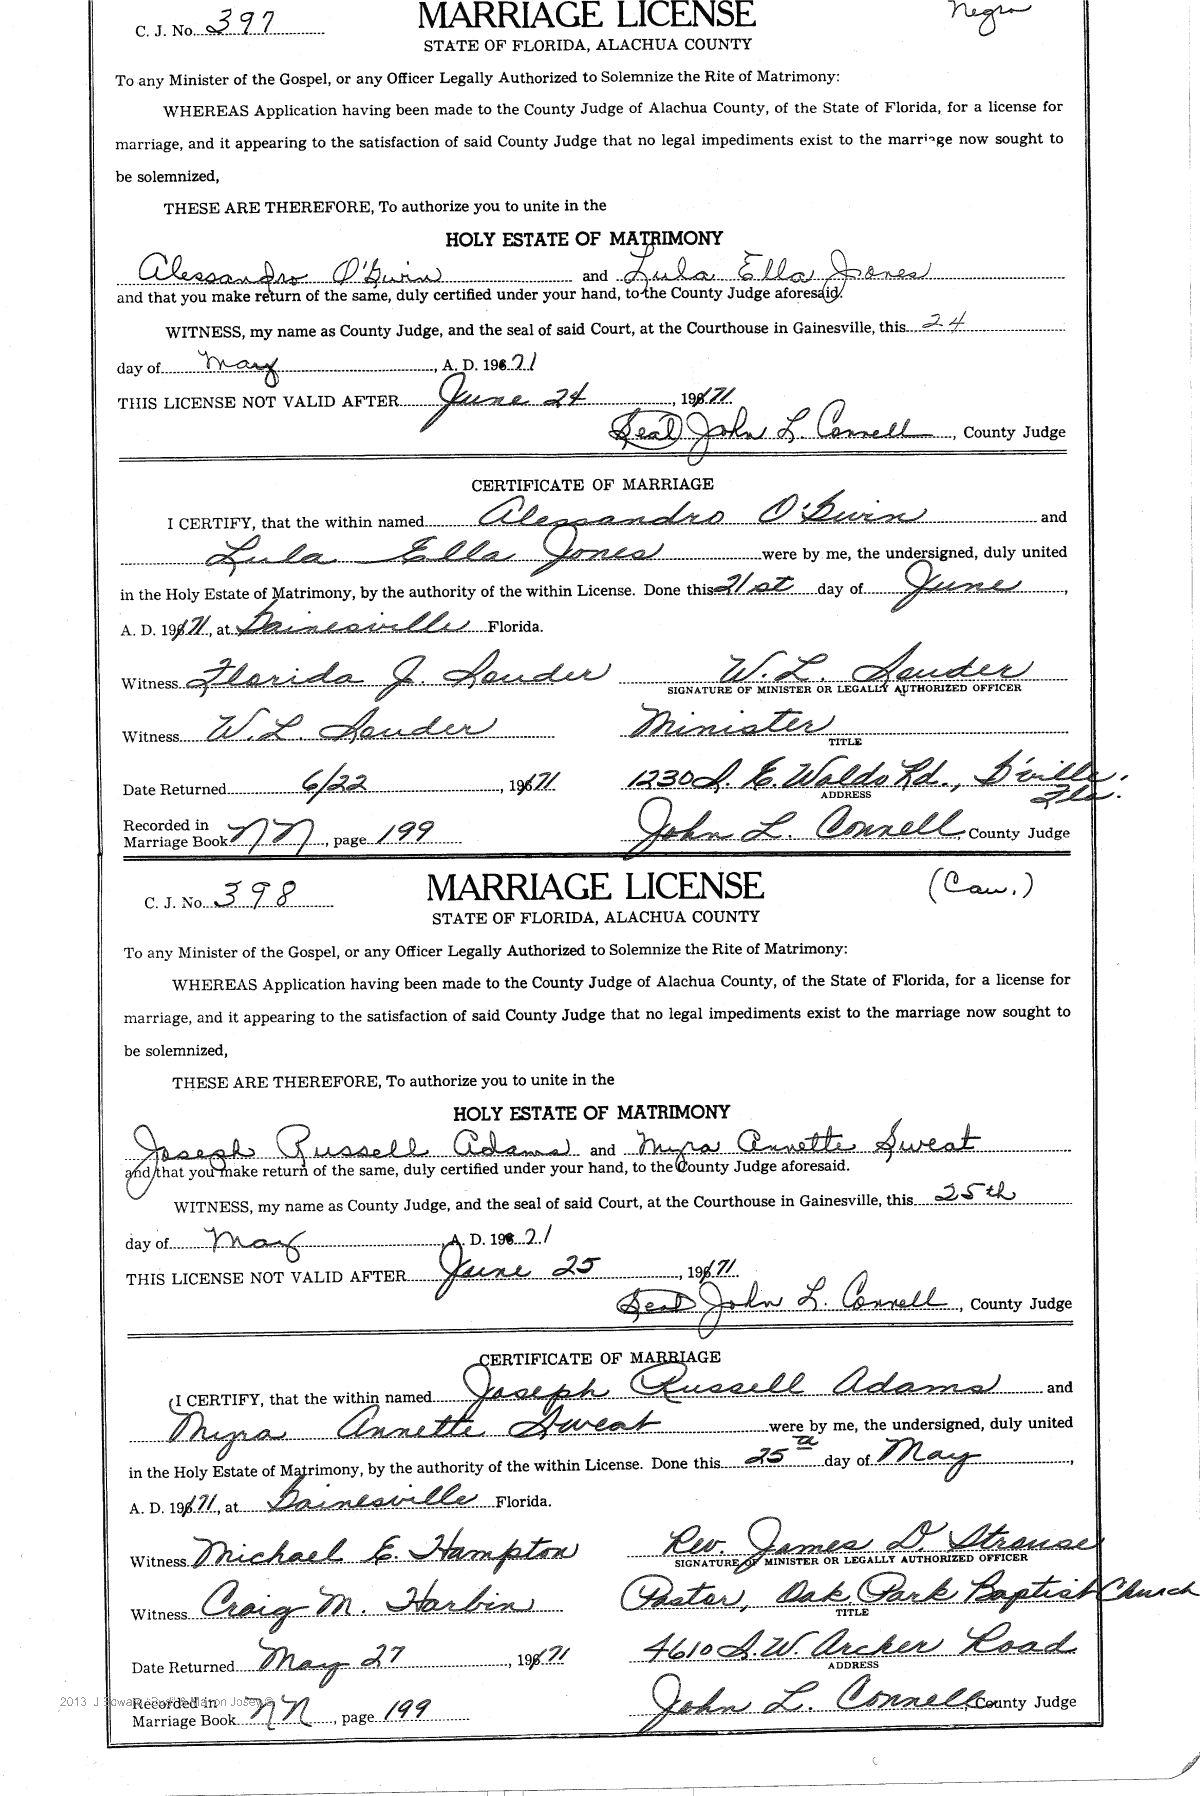 C. J. No. 397 MARRIAGE LICENSE Negro
STATE OF FLORIDA, ALACHUA COUNTY
To any Minister of the Gospel, or any Officer Legally Authorized to Solemnize the Rite of Matrimony:
WHEREAS Application having been made to the County Judge of Alachua County, of the State of Florida, for a license for
marriage, and it appearing to the satisfaction of said County Judge that no legal impediments exist to the marriage now sought to
be solemnized,
THESE ARE THEREFORE, To authorize you to unite in the
HOLY ESTATE OF MATRIMONY
Alessandro O'Guin and Lula Ella Jones
and that you make return of the same, duly certified under your hand, to the County Judge aforesaid.
WITNESS, my name as County Judge, and the seal of said Court, at the Courthouse in Gainesville, this 24
day of May, A. D. 1971
THIS LICENSE NOT VALID AFTER June 24, 1971
(Seal) John L. Connell, County Judge
CERTIFICATE OF MARRIAGE
I CERTIFY, that the within named Alessandro O'Guin and
Lula Ella Jones were by me, the undersigned, duly united
in the Holy Estate of Matrimony, by the authority of the within License. Done this 21st day of June,
A. D. 1971, at Gainesville Florida.
Witness Florida J. Sauder W. L. Sauder
SIGNATURE OF MINISTER OR LEGALLY AUTHORIZED OFFICER
Witness W. L. Sauder Minister
TITLE
Date Returned 6/22, 1971 1230 S. E. Waldo Rd., G'ville, Fla.
ADDRESS
Recorded in
Marriage Book NN, page 199 John L. Connell, County Judge
C. J. No. 398 MARRIAGE LICENSE (Cau.)
STATE OF FLORIDA, ALACHUA COUNTY
To any Minister of the Gospel, or any Officer Legally Authorized to Solemnize the Rite of Matrimony:
WHEREAS Application having been made to the County Judge of Alachua County, of the State of Florida, for a license for
marriage, and it appearing to the satisfaction of said County Judge that no legal impediments exist to the marriage now sought to
be solemnized,
THESE ARE THEREFORE, To authorize you to unite in the
HOLY ESTATE OF MATRIMONY
Joseph Russell Adams and Myra Annette Sweat
and that you make return of the same, duly certified under your hand, to the County Judge aforesaid.
WITNESS, my name as County Judge, and the seal of said Court, at the Courthouse in Gainesville, this 25th
day of May A. D. 1971
THIS LICENSE NOT VALID AFTER June 25, 1971
(Seal) John L. Connell, County Judge
CERTIFICATE OF MARRIAGE
I CERTIFY, that the within named Joseph Russell Adams and
Myra Annette Sweat were by me, the undersigned, duly united
in the Holy Estate of Matrimony, by the authority of the within License. Done this 25th day of May,
A. D. 1971, at Gainesville Florida.
Witness Michael E. Hampton Rev. James D. Strouse
SIGNATURE OF MINISTER OR LEGALLY AUTHORIZED OFFICER
Witness Craig M. Harbin Pastor, Oak Park Baptist Church
TITLE
Date Returned May 27, 1971 4610 S.W. Archer Road
ADDRESS
Recorded in
Marriage Book NN, page 199 John L. Connell, County Judge
2013 J